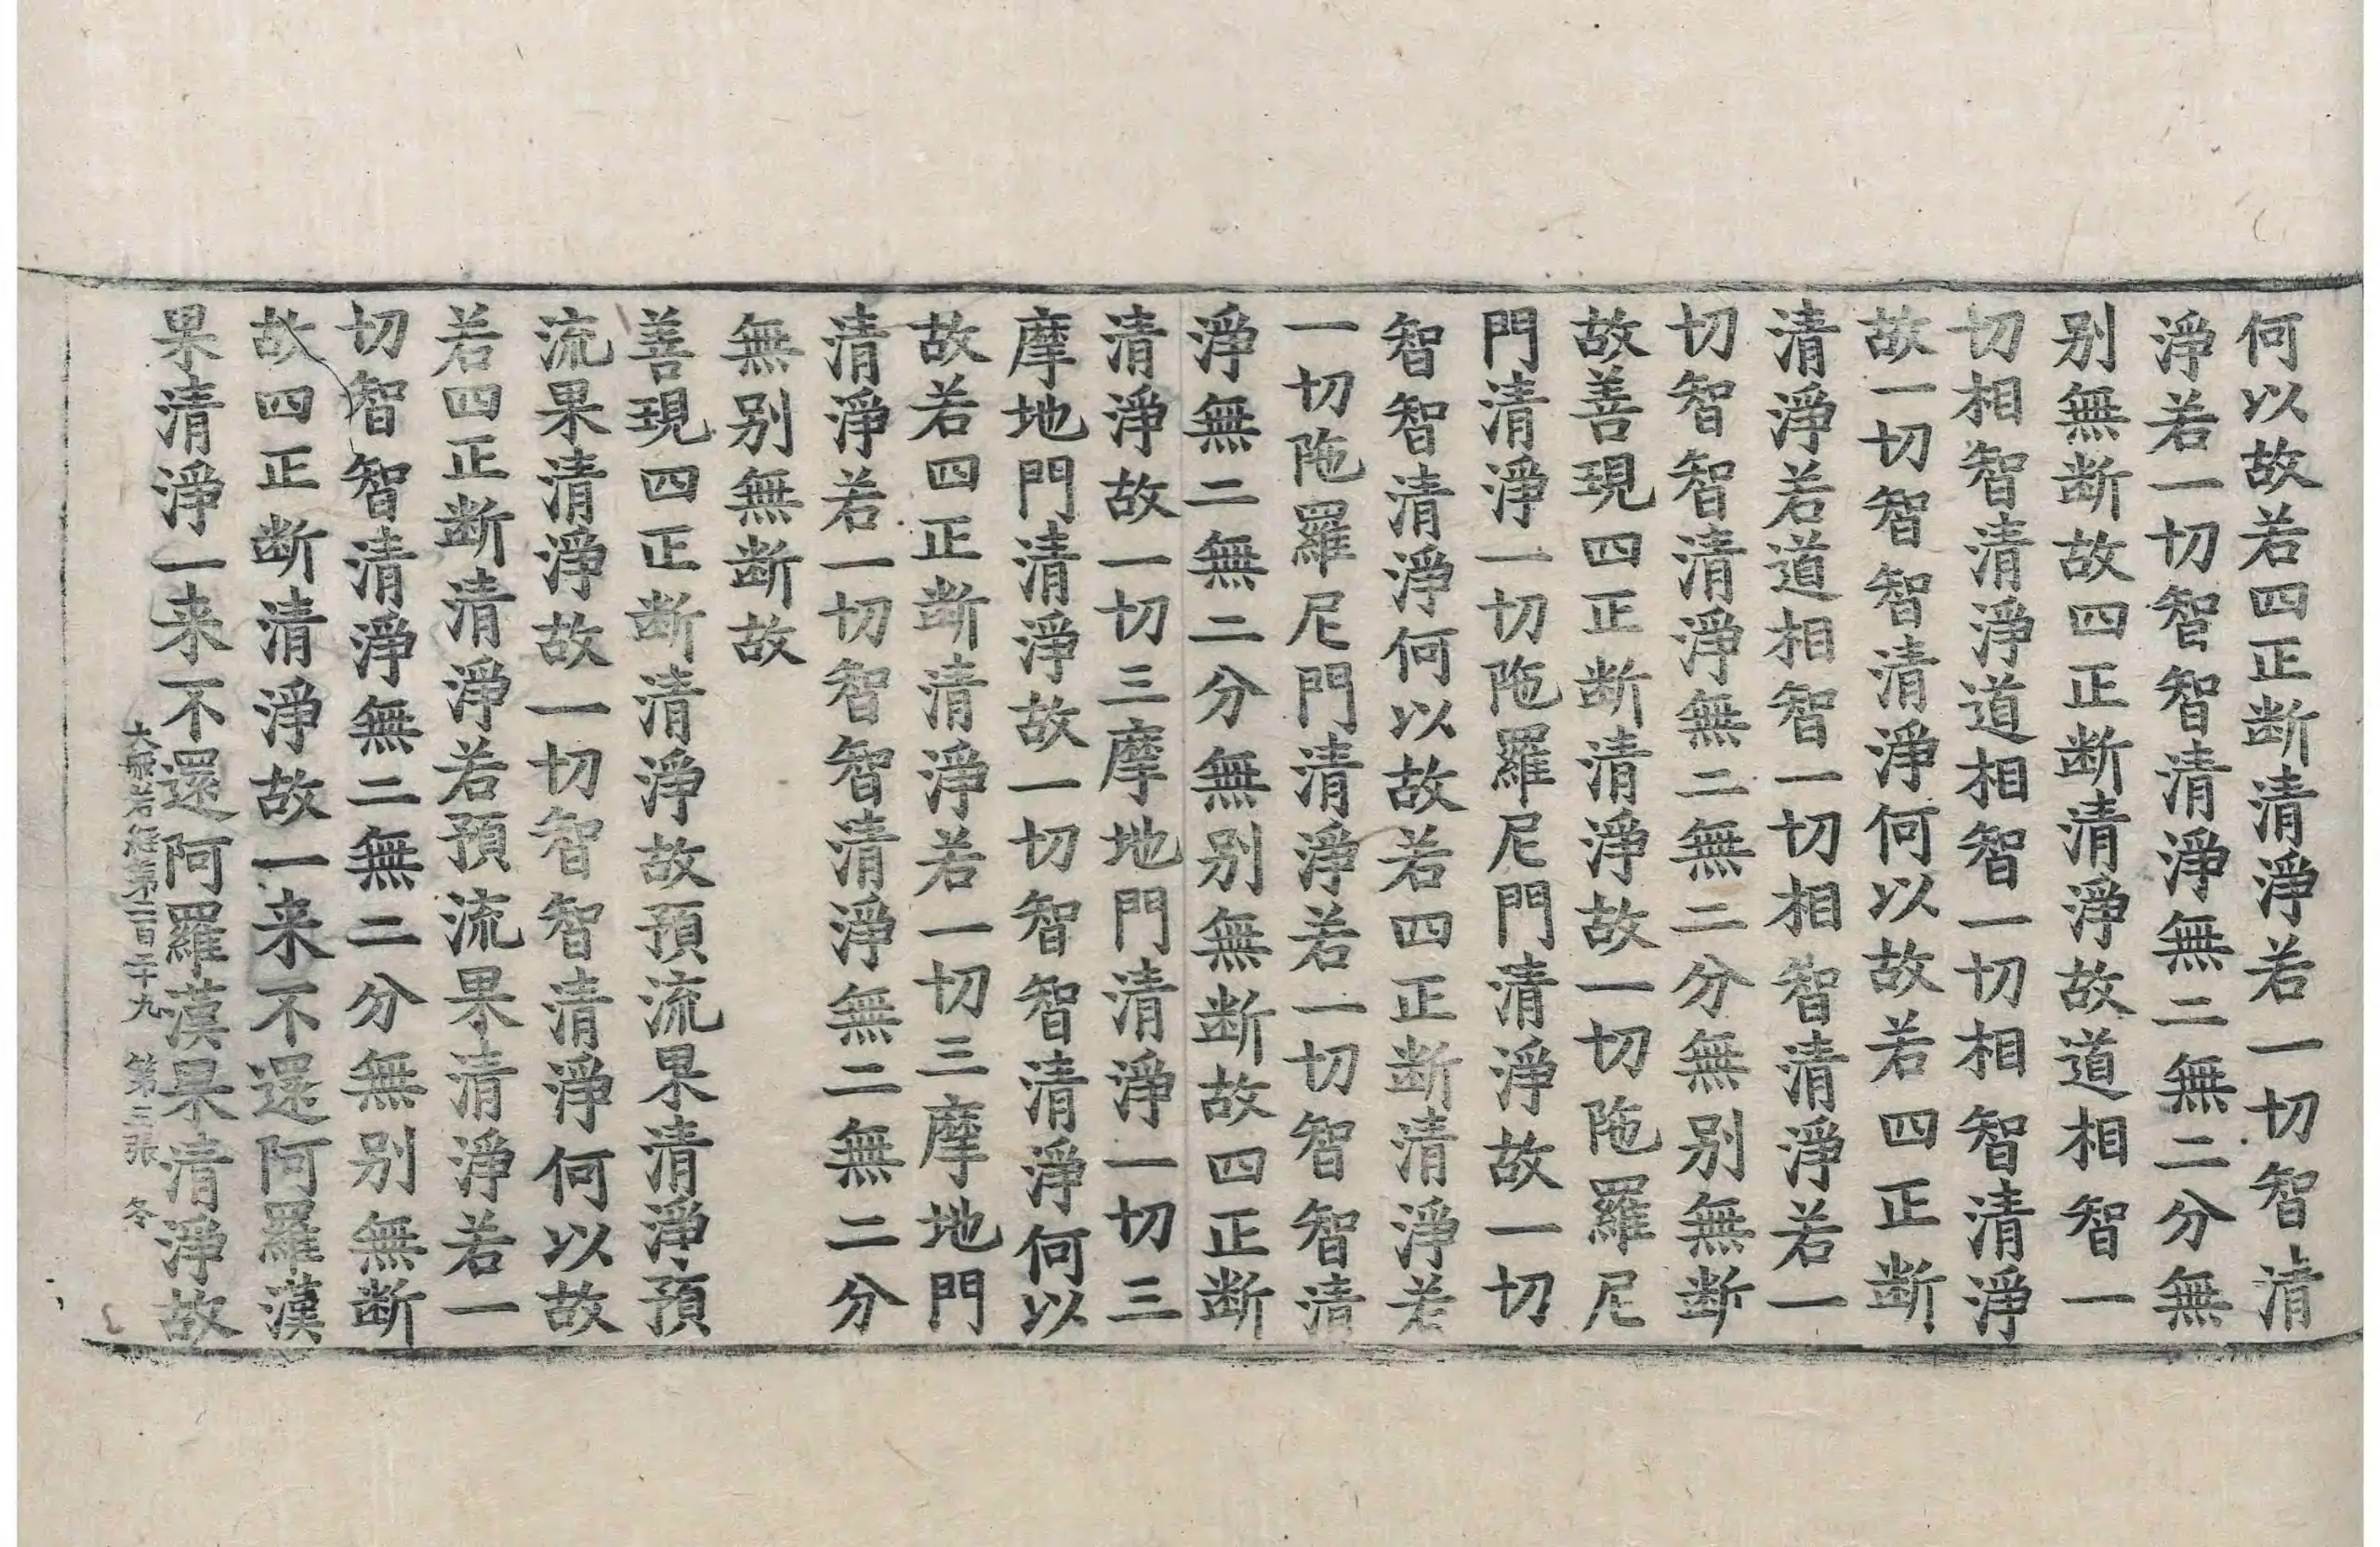 何以故若四正断清淨若一切智清
淨若一切智智清淨無二無二分無
别無断故四正断清淨故道相智一
切相智清淨道相智一切相智清淨
故一切智智清淨何以故若四正断
清淨若道相智一切相智清淨若一
切智智清淨無二無二分無别無断
故善現四正断清淨故一切陁羅尼
門清淨一切陁羅尼門清淨故一切
智智清淨何以故若四正断清淨若
一切陁羅尼門清淨若一切智智清
淨無二無二分無别無断故四正断
清淨故一切三摩地門清淨一切三
摩地門清淨故一切智智清淨何以
故若四正断清淨若一切三摩地門
清淨若一切智智清淨無二無二分
無别無断故
善現四正断清淨故預流果清淨預
流果清淨故一切智智清淨何以故
若四正断清淨若預流果清淨若一
切智智清淨無二無二分無别無断
故四正断清淨故一来不還阿羅漢
果清淨一来不還阿羅漢果清淨故
大般若經第二百二十九 第三張 冬